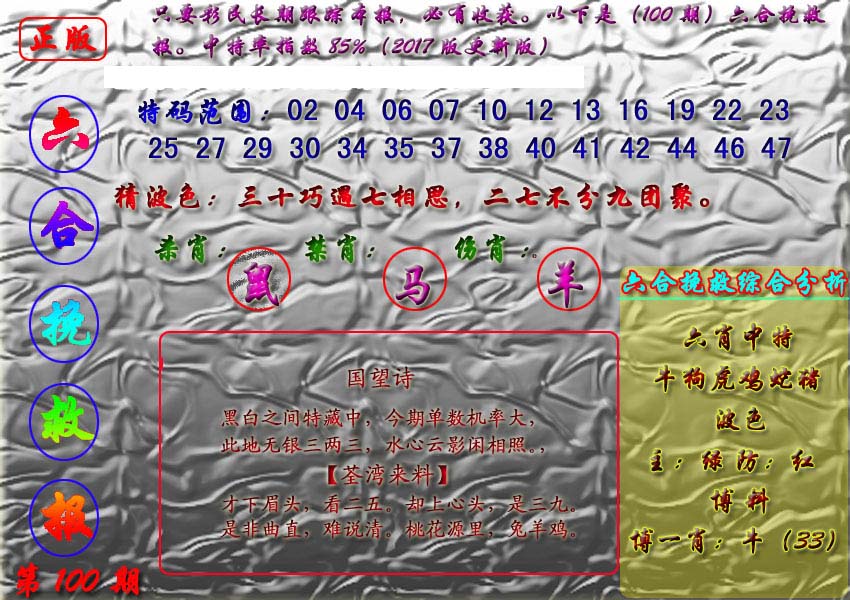 正版
只要彩民长期跟踪本报，必有收获。以下是（100 期）六合挽救
报。中特率指数 85%（2017 版更新版）
特码范围：02 04 06 07 10 12 13 16 19 22 23
25 27 29 30 34 35 37 38 40 41 42 44 46 47
猜波色：三十巧遇七相思，二七不分九团聚。
六合挽救报
杀肖： 禁肖： 伤肖：。
鼠 马 羊
国望诗
黑白之间特藏中，今期单数机率大，
此地无银三两三，水心云影闲相照。，
【荃湾来料】
才下眉头，看二五。却上心头，是三九。
是非曲直，难说清。桃花源里，兔羊鸡。
六合挽救综合分析
六肖中特
牛狗虎鸡蛇猪
波色
主：绿 防：红
博料
博一肖：牛（33）
第 100 期